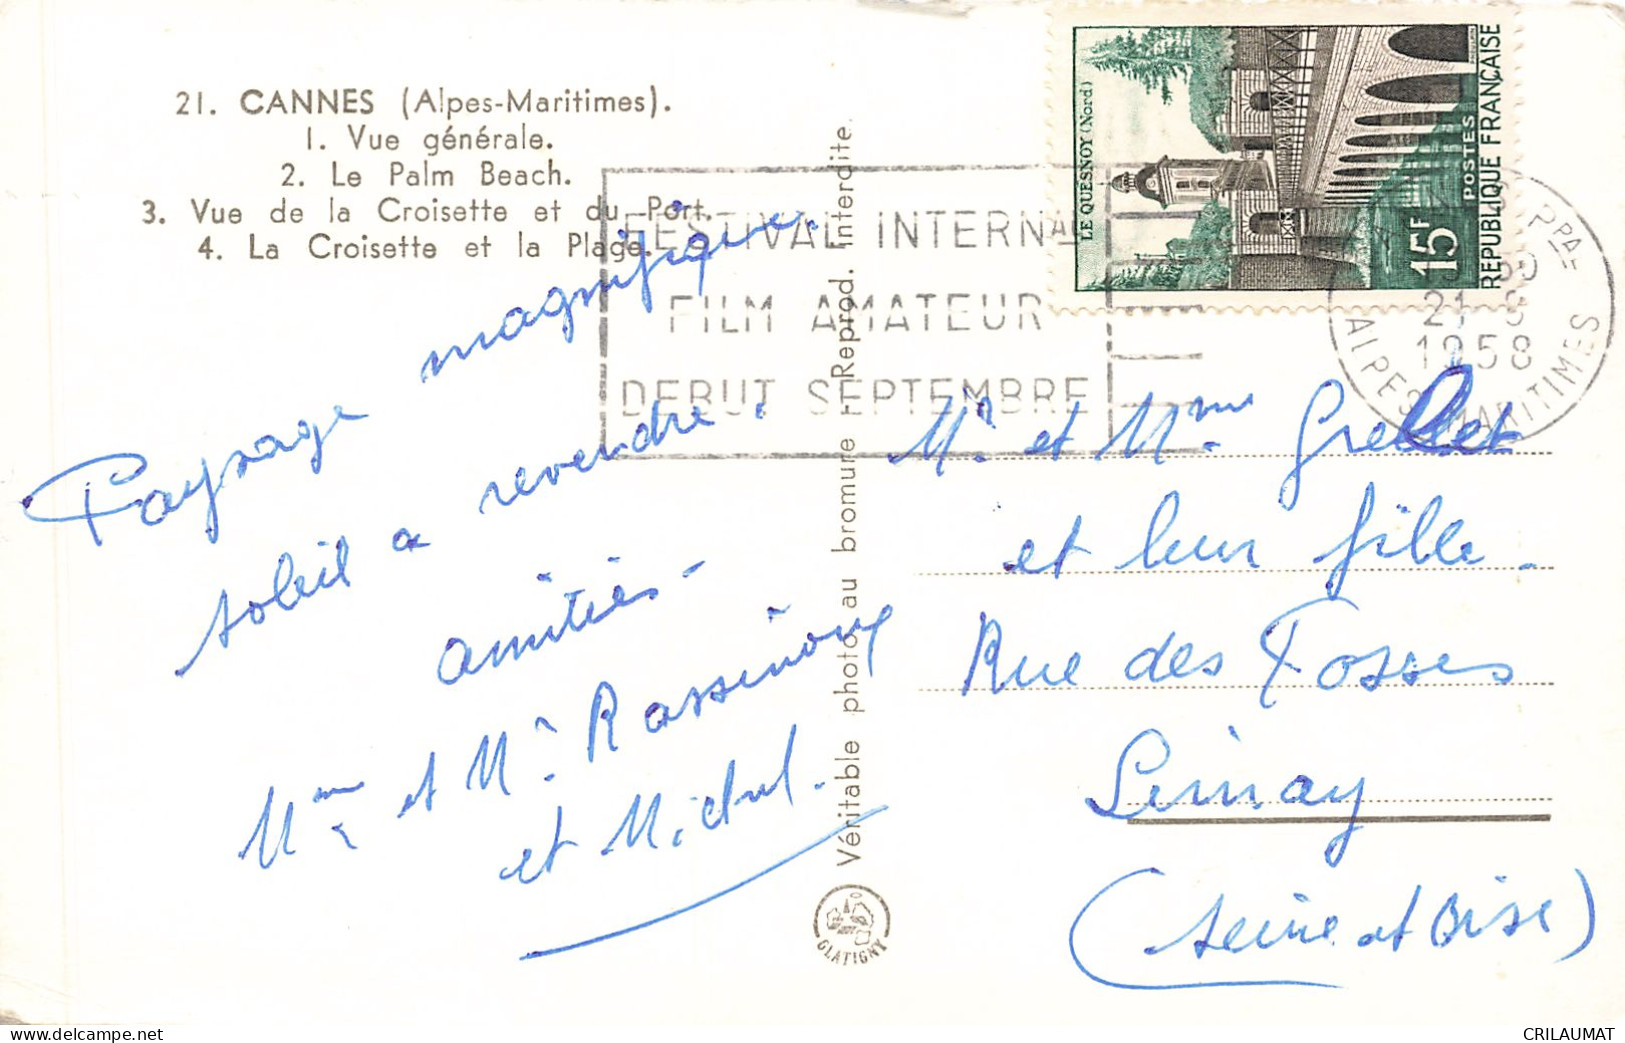 21. CANNES (Alpes-Maritimes).
1. Vue générale.
2. Le Palm Beach.
3. Vue de la Croisette et du Port.
4. La Croisette et la Plage.
Paysage magnifique.
soleil a revendre.
amitiés -
Mme et Mr Rassinoux
et Michel.
Véritable photo au bromure - Reprod. Interdite.
GLATIGNY
FESTIVAL INTERNAL
FILM AMATEUR
DEBUT SEPTEMBRE
LE QUESNOY (Nord)
15F
POSTES
REPUBLIQUE FRANÇAISE
PPAL
21-8
1958
ALPES MARITIMES
Mr et Mme Grellet
et leur fille.
Rue des Fosses
Limay
(Seine et Oise)
delcampe.net
CRILAUMAT